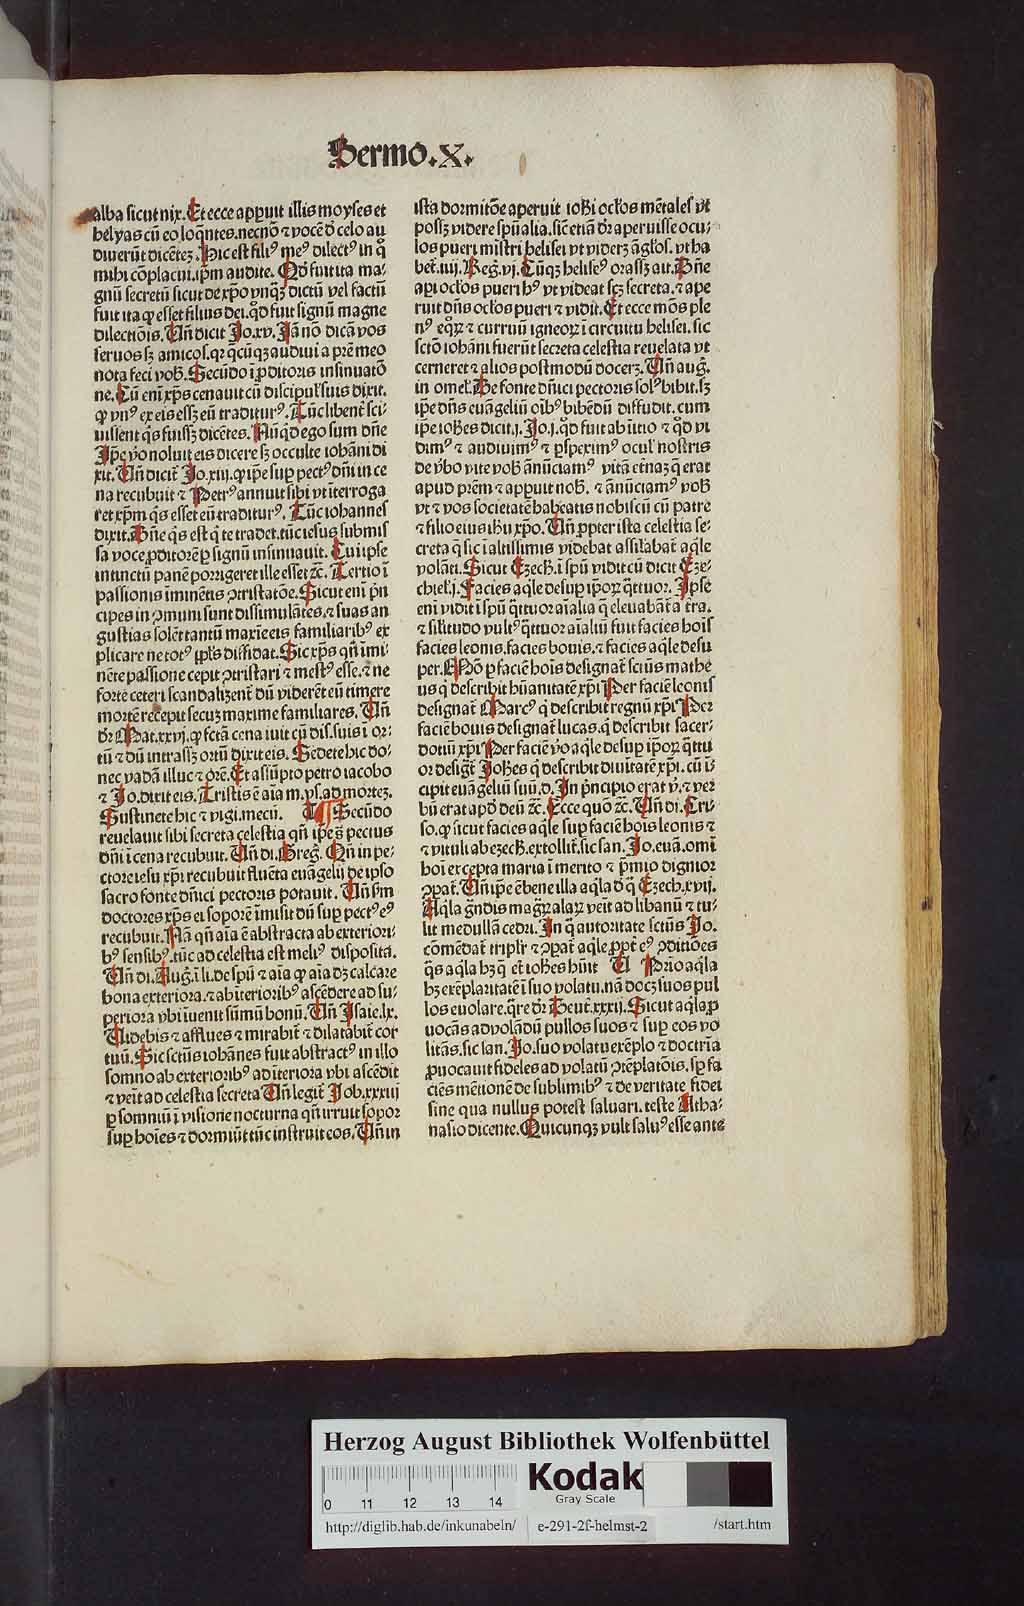 Sermo.X.
alba sicut nix. Et ecce apꝑuit illis moyses et
helyas cū eo loq̄ntes. necnō ⁊ vocē d̓ celo au
diuerūt dicētez. Hic est filiꝰ meꝰ dilectꝰ in q̊
mihi cōplacui. ip̄m audite. Qd̓ fuit ita ma⸗
gnū secretū sicut de xp̄o vnq̄ꝫ dictū vel factū
fuit ita ꝙ esset filius dei. qd̓ fuit signū magne
dilectiōis. Vn̄ dicit Jo.xv. Jā nō dicā vos
seruos sꝫ amicos. qꝛ q̄cūqꝫ audiui a pr̄e meo
nota feci vob̄. Secūdo ī ꝓditoris insinuatō
ne. Cū enī xp̄s cenauit cū discipul̓ suis dixit.
ꝙ vnꝰ ex eis eēt eū traditurꝰ. Tūc libent̓ sci⸗
uissent q̄s fuisꝫ dicētes. Nūq̄d ego sum dn̄e
Ip̄e ṽo noluit eis dicere sꝫ occulte iohāni di
xit. Vn̄ dicit̓ Jo.xiij. ꝙ ip̄e suꝑ pectꝰ dn̄i in ce
na recubuit ⁊ Petrꝰ annuit sibi vt īterroga
ret xp̄m q̄s esset eū traditurꝰ. Tūc iohannes
dixit. Dn̄e q̄s est q̄ te tradet. tūc iesus submis
sa voce ꝓditorē ꝑ signū insinuauit. Cui ipse
intinctū panē porrigeret ille esset ⁊c̄. Tertio ī
passionis iminētis ꝯtristatōe. Sicut eni pn̄
cipes in ꝯmuni sunt dissimulātes. ⁊ suas an
gustias solēt tantū maxie eis familiaribꝰ ex
plicare ne totꝰ ppl̓s diffidat. Sic xp̄s qn̄ imi⸗
nēte passione cepit ꝯtristari ⁊ mestꝰ esse. ⁊ ne
forte ceteri scandalizent̓ dū viderēt eū timere
mortē recepit secuꝫ maxime familiares. Vn̄
dr̄ Mat.xxvj. ꝙ fctā cena iuit cū dis. suis ī or⸗
tū ⁊ dū intrassꝫ ortū dixit eis. Sedete hic do⸗
nec vadā illuc ⁊ orē. Et assūpto petro iacobo
⁊ Jo. dixit eis. Tristis ē aīa m. vsꝫ ad mortez.
Sustinete hic ⁊ vigi. mecū. ¶ Secūdo
reuelauit sibi secreta celestia qn̄ ip̄e s̄ pectus
dn̄i ī cena recubuit. Vn̄ di. Greg̓. Qn̄ in pe⸗
ctore iesu xp̄i recubuit fluēta euāgelij de ipso
sacro fonte dn̄ici pectoris potauit. Vn̄ sm̄
doctores xp̄s ei soporē īmisit dū suꝑ pectꝰ eꝰ
recubuit. Nā qn̄ aīa ē abstracta ab exteriori⸗
bꝰ sensibꝰ. tūc ad celestia est meliꝰ disposita.
Vn̄ di. Aug̓. ī li. de spū ⁊ aīa ꝙ aīa dꝫ calcare
bona exteriora. ⁊ ab īterioribꝰ ascēdere ad su⸗
periora vbi īuenit sūmū bonū. Vn̄ Isaie.lx.
Videbis ⁊ afflues ⁊ mirabit̓ ⁊ dilatabit̓ cor
tuū. Sic sctūs iohānes fuit abstractꝰ in illo
somno ab exterioribꝰ ad īteriora vbi ascēdit
⁊ veīt ad celestia secreta Vn̄ legit̓ Job.xxxiij
ꝑ somniū ī visione nocturna qn̄ irruit sopor
suꝑ hoīes ⁊ dormiūt tūc instruit eos. Vn̄ in
ista dormitōe aperuit ioh̄i ocl̓os mētales vt
possꝫ videre spūalia. sic̄ etiā dr̄ aperuisse ocu⸗
los pueri mīstri helisei vt viderꝫ āgl̓os. vt ha
bet̓. iiij. Reg̓. vj. Cūqꝫ heliseꝰ orassꝫ ait. Dn̄e
apī ocl̓os pueri hꝰ vt videat sꝫ secreta. ⁊ ape
ruit dn̄s ocl̓os pueri ⁊ vidit. Et ecce mōs ple
nꝰ eqꝝ ⁊ curruū igneoꝝ ī circuitu helisei. sic
sctō iohāni fuerūt secreta celestia reuelata vt
cerneret ⁊ alios postmodū docerꝫ. Vn̄ aug̓.
in omel̓. De fonte dn̄ici pectoris solꝰ bibit. sꝫ
ip̄e dn̄s euāgeliū oībꝰ bibēdū diffudit. cum
ip̄e ioh̄es dicit. j. Jo.j. qd̓ fuit ab ītio ⁊ qd̓ vi
dimꝰ ⁊ audiuimꝰ ⁊ ꝑspeximꝰ ocul̓ nostris
de v̓bo vite vob̄ ānūciamꝰ vitā et̓naꝫ q̄ erat
apud prēm ⁊ apꝑuit nob̄. ⁊ ānūciamꝰ vob̄
vt ⁊ vos societatē habeatis nobiscū cū patre
⁊ filio eius ih̄u xp̄o. Vn̄ ꝓpter ista celestia se⸗
creta q̄ sic̄ ī altissimis videbat assil̓abat̓ aq̄le
volāti. Sicut Ezech̄. ī spū vidit cū dicit Eze⸗
chiel̓.j. Facies aq̄le desuꝑ ip̄oꝝ q̄ttuor. Ipse
eni vidit ī spū q̄ttuor aīalia q̄ eleuabāt̓ a t̓ra.
⁊ sil̓itudo vultꝰ q̄ttuor aīaliū fuit facies hoīs
facies leonis. facies bouis. ⁊ facies aq̄le desu
per. Nō ꝑ faciē hoīs designat̓ sctūs mathe
us q̄ describit hūanitatē xp̄i Per faciē leonis
designat̓ Marcꝰ q̄ describit regnū xp̄i Per
faciē bouis designat̓ lucas. q̄ describit sacer⸗
dotiū xp̄i Per faciē ṽo aq̄le desuꝑ ip̄oꝝ q̄ttu
or desigt̓ Joh̄es q̄ describit diuitatē xp̄i. cū ī⸗
cipit euāgeliū suū. d. In pn̓cipio erat v̓. ⁊ ver
bū erat apd̓ deū ⁊c̄. Ecce quō ⁊c̄. Vn̄ di. Cri⸗
so. ꝙ sicut facies aq̄le suꝑ faciē hoīs leonis ⁊
⁊ vituli ab ezech̄. extollit̓. sic̄ san. Jo. euā. omī
hoī excepta maria ī merito ⁊ pm̓io dignior
ꝯpat̓. Vn̄ ip̄e ē bene illa aq̄la d̓ q̄ Ezech.xvij.
Aq̄la g̓ndis magꝝ alaꝝ veīt ad libanū ⁊ tu⸗
lit medullā cedri. In q̄ autoritate sctūs Jo.
cōmēdat̓ tripl̓r ⁊ ꝯpat̓ aq̄le ꝓpt̓ eꝰ ꝯditiōes
q̄s aq̄la hꝫ q̄s et ioh̄es hūit ¶ Pr̄io aq̄la
hꝫ exēplaritatē ī suo volatu. nā docꝫ suos pul
los euolare. q̄re dr̄ Deut.xxxij. Sicut aq̄la ꝓ
uocās ad volādū pullos suos ⁊ suꝑ eos vo
litās. sic san. Jo. suo volatu exēplo ⁊ doctrīa
ꝓuocauit fideles ad volatū ꝯtēplatōis. sꝑ fa
ciēs mētionē de sublimibꝰ ⁊ de veritate fidei
sine qua nullus potest saluari. teste Atha⸗
nasio dicente. Quicunqꝫ vult saluꝰ esse ante
Herzog August Bibliothek Wolfenbüttel
0 11 12 13 14
Kodak
Gray Scale
http://diglib.hab.de/inkunabeln/ e-291-2f-helmst-2 /start.htm